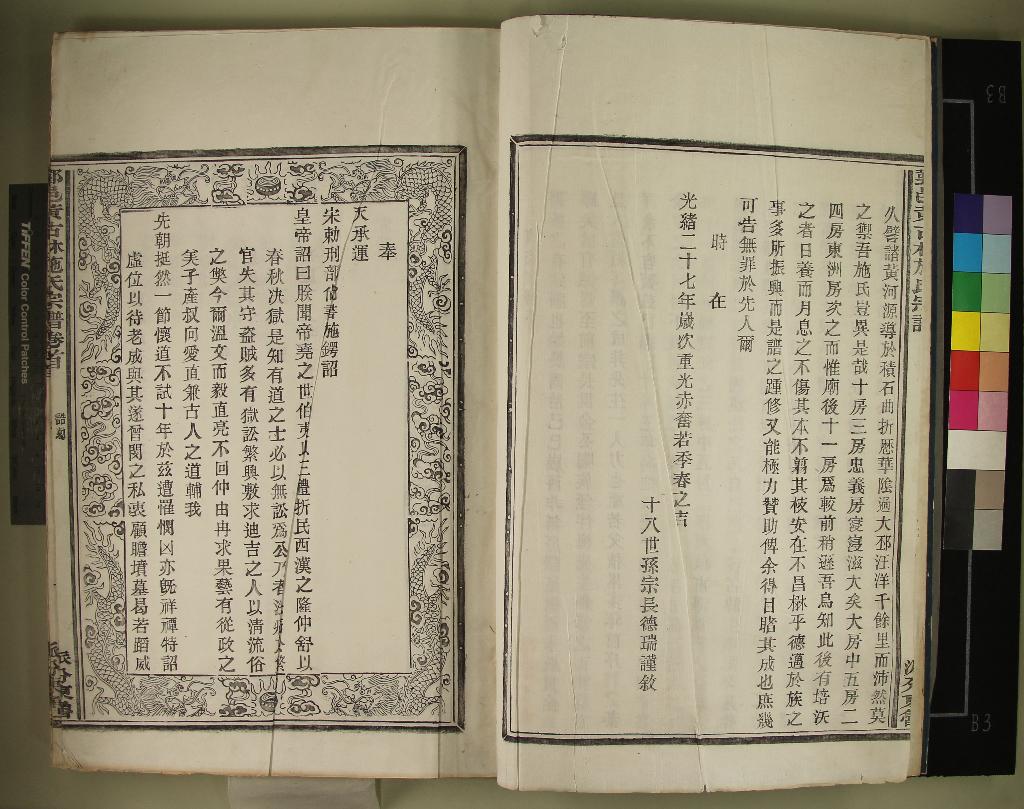 久譬諸黃河源導於積石曲折歷華陰過大邳汪洋千餘里而沛然莫
之禦吾施氏豈異是哉十房三房忠義房寖寖滋大矣大房中五房二
四房東洲房次之而惟廟後十一房爲較前稍遜吾烏知此後有培沃
之者日養而月息之不傷其本不翦其枝安在不昌楙乎德邁於族之
事多所振興而是譜之踵修又能極力贊助俾余得目睹其成也庶幾
可告無罪於先人爾
時在
光緒二十七年歲次重光赤奮若季春之吉
十八世孫宗長德瑞謹敘
奉
天承運
宋勅刑部尚書施鍔詔
皇帝詔曰朕聞帝堯之世伯夷以三禮折民西漢之隆仲舒以
春秋決獄是知有道之士必以無訟爲公乃者
官失其守盜賊多有獄訟繁興敷求迪吉之人以清流俗
之獘今爾溫文而毅直亮不回仲由冉求果藝有從政之
笑子產叔向愛直兼古人之道輔我
先朝挺然一節懷道不試十年於茲遭罹憫凶亦旣祥禫特詔
虛位以待老成與其遂曾閔之私衷顧瞻墳墓曷若蹈威
鄞邑黃古林施氏宗譜卷首
誥勅
TIFFEN Color Control Patches
B3
B3